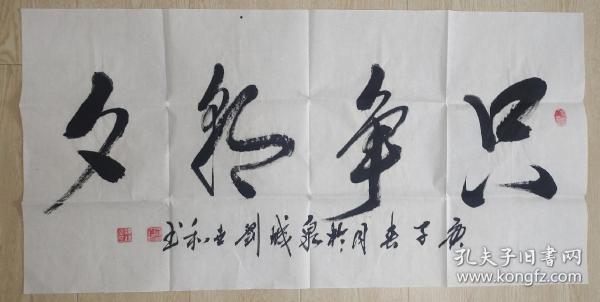 只争朝夕
庚子春月於泉城劉世和書
孔夫子旧书网
www.kongfz.com